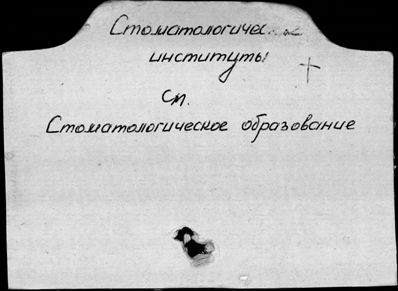 Стоматологические
институты
См.
Стоматологическое образование